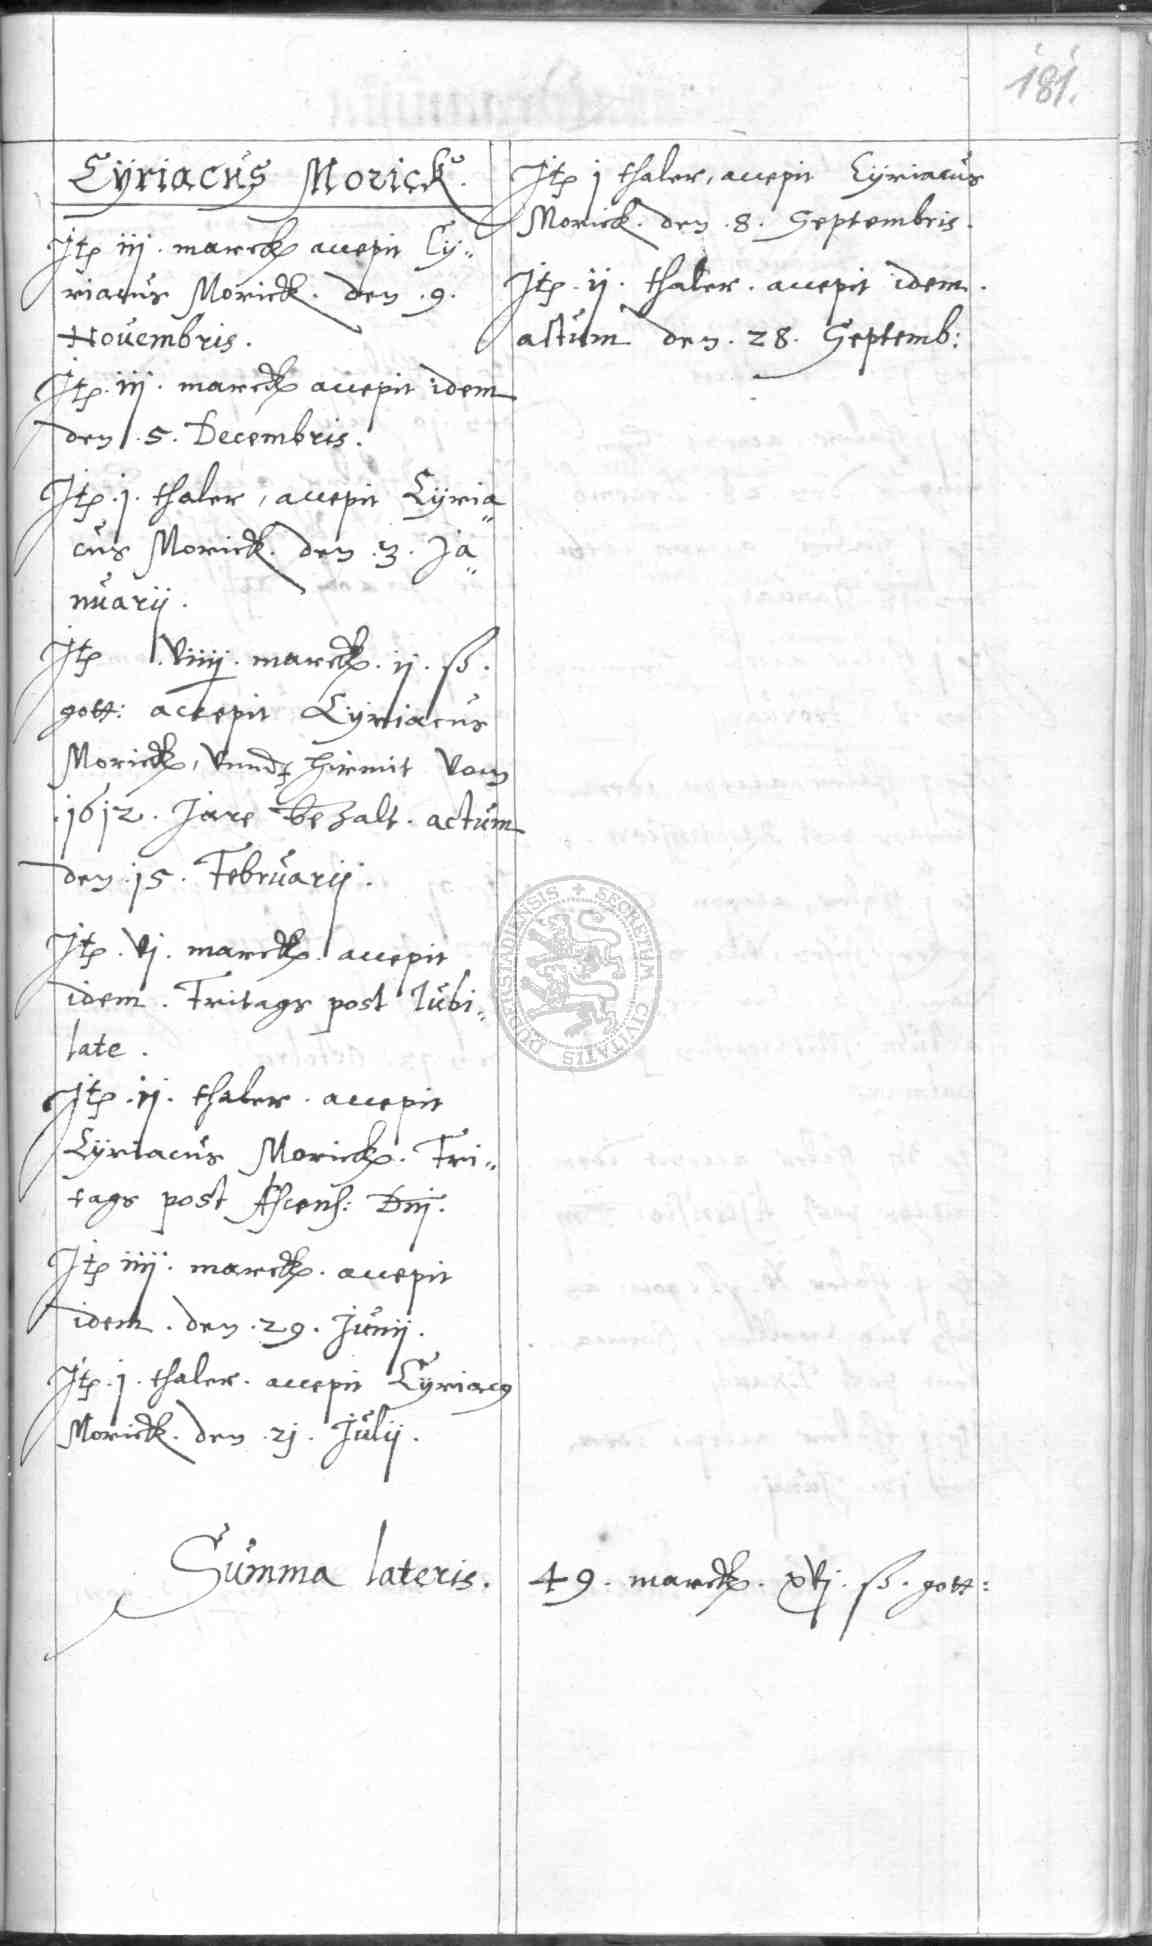 181.
Cÿriacus Morick.
Itꝑ iij. marck accepit Cÿ„
riacus Morick. den .9.
Novembris.
Itꝑ. iij. marck accepit idem
den .5. Decembris.
Itꝑ. j. thaler, accepit Cÿria„
cus Morick. den .3. Ja„
nuarij.
Itꝑ viiij. marck. ij. ß.
gott: accepit Cÿriacus
Morick, vnndt hirmit vom
.1612. Jare bezalt. actum
den .15. Februarij.
Itꝑ. vj. marck. accepit
idem. Fritags post Jubi„
late.
Itꝑ. ij. thaler. accepit
Cÿriacus Morick. Fri„
tags post Ascens: Dni.
Itꝑ iiij. marck. accepit
idem. den .29. Junij.
Itꝑ. j. thaler. accepit Cÿriacꝰ
Morick. den .21. Julij.
Itꝑ j thaler, accepit Cÿriacus
Morick. den .8. Septembris.
Itꝑ. ij. thaler. accepit idem.
actum den. 28. Septemb:
Summa lateris. 49. marck. xvj. ß. gott:
SECRETUM CIVITATIS DUDERSTADIENSIS